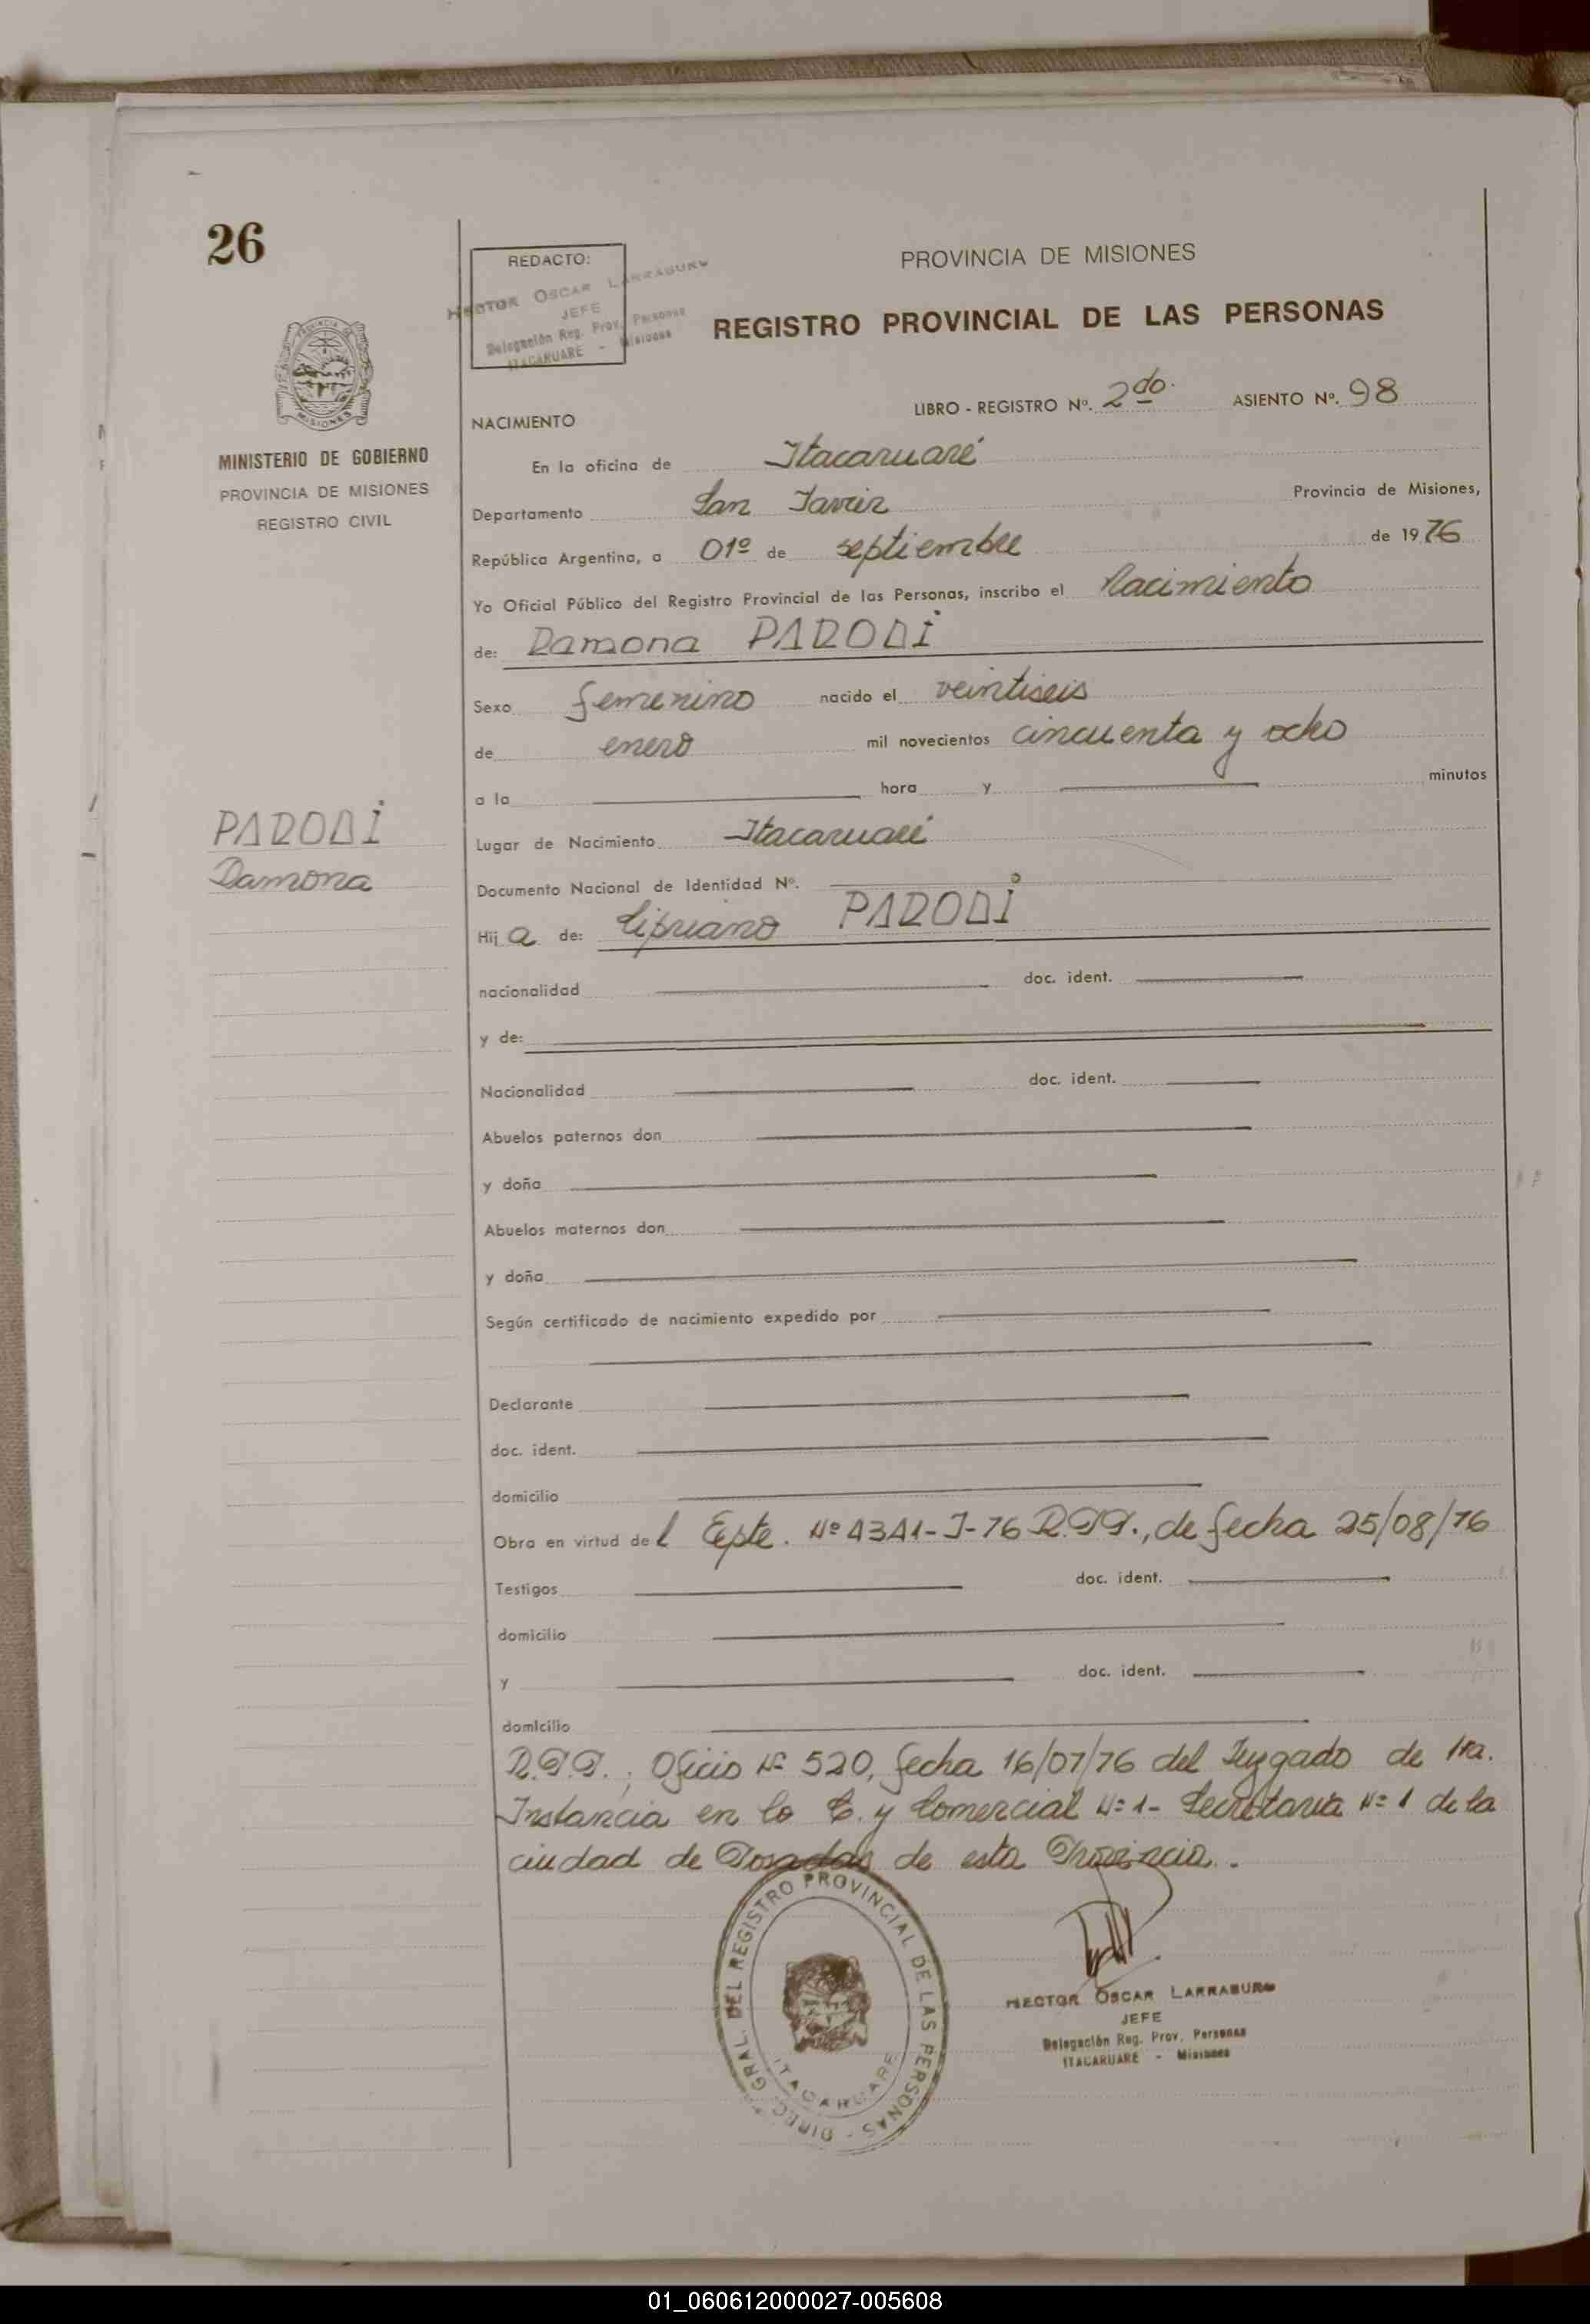 26
REDACTO:
HECTOR OSCAR LARRABURU
JEFE
Delegación Reg. Prov. Personas
ITACARUARE - Misiones
PROVINCIA DE MISIONES
REGISTRO PROVINCIAL DE LAS PERSONAS
PROVINCIA DE
MISIONES
MINISTERIO DE GOBIERNO
PROVINCIA DE MISIONES
REGISTRO CIVIL
LIBRO - REGISTRO Nº. 2do. ASIENTO Nº. 98
NACIMIENTO
En la oficina de Itacaruaré
Departamento San Javier Provincia de Misiones,
República Argentina, a 01º de septiembre de 1976
Yo Oficial Público del Registro Provincial de las Personas, inscribo el Nacimiento
de: Ramona PARODI
Sexo femenino nacido el veintiseis
de enero mil novecientos cincuenta y ocho
a la hora y minutos
PARODI
Ramona
Lugar de Nacimiento Itacaruaré
Documento Nacional de Identidad Nº.
Hija de: Cipriano PARODI
nacionalidad doc. ident.
y de:
Nacionalidad doc. ident.
Abuelos paternos don
y doña
Abuelos maternos don
y doña
Según certificado de nacimiento expedido por
Declarante
doc. ident.
domicilio
Obra en virtud del Expte. Nº 4341-J-76 R.P.P., de fecha 25/08/76
Testigos doc. ident.
domicilio
y doc. ident.
domicilio
R.P.P.; Oficio Nº 520, fecha 16/07/76 del Juzgado de 1ra.
Instancia en lo C. y Comercial Nº 1- Secretaria Nº 1 de la
ciudad de Posadas de esta Provincia.
DIREC. GRAL. DEL REGISTRO PROVINCIAL DE LAS PERSONAS -
ITACARUARE
HECTOR OSCAR LARRABURU
JEFE
Delegación Reg. Prov. Personas
ITACARUARE - Misiones
01_060612000027-005608